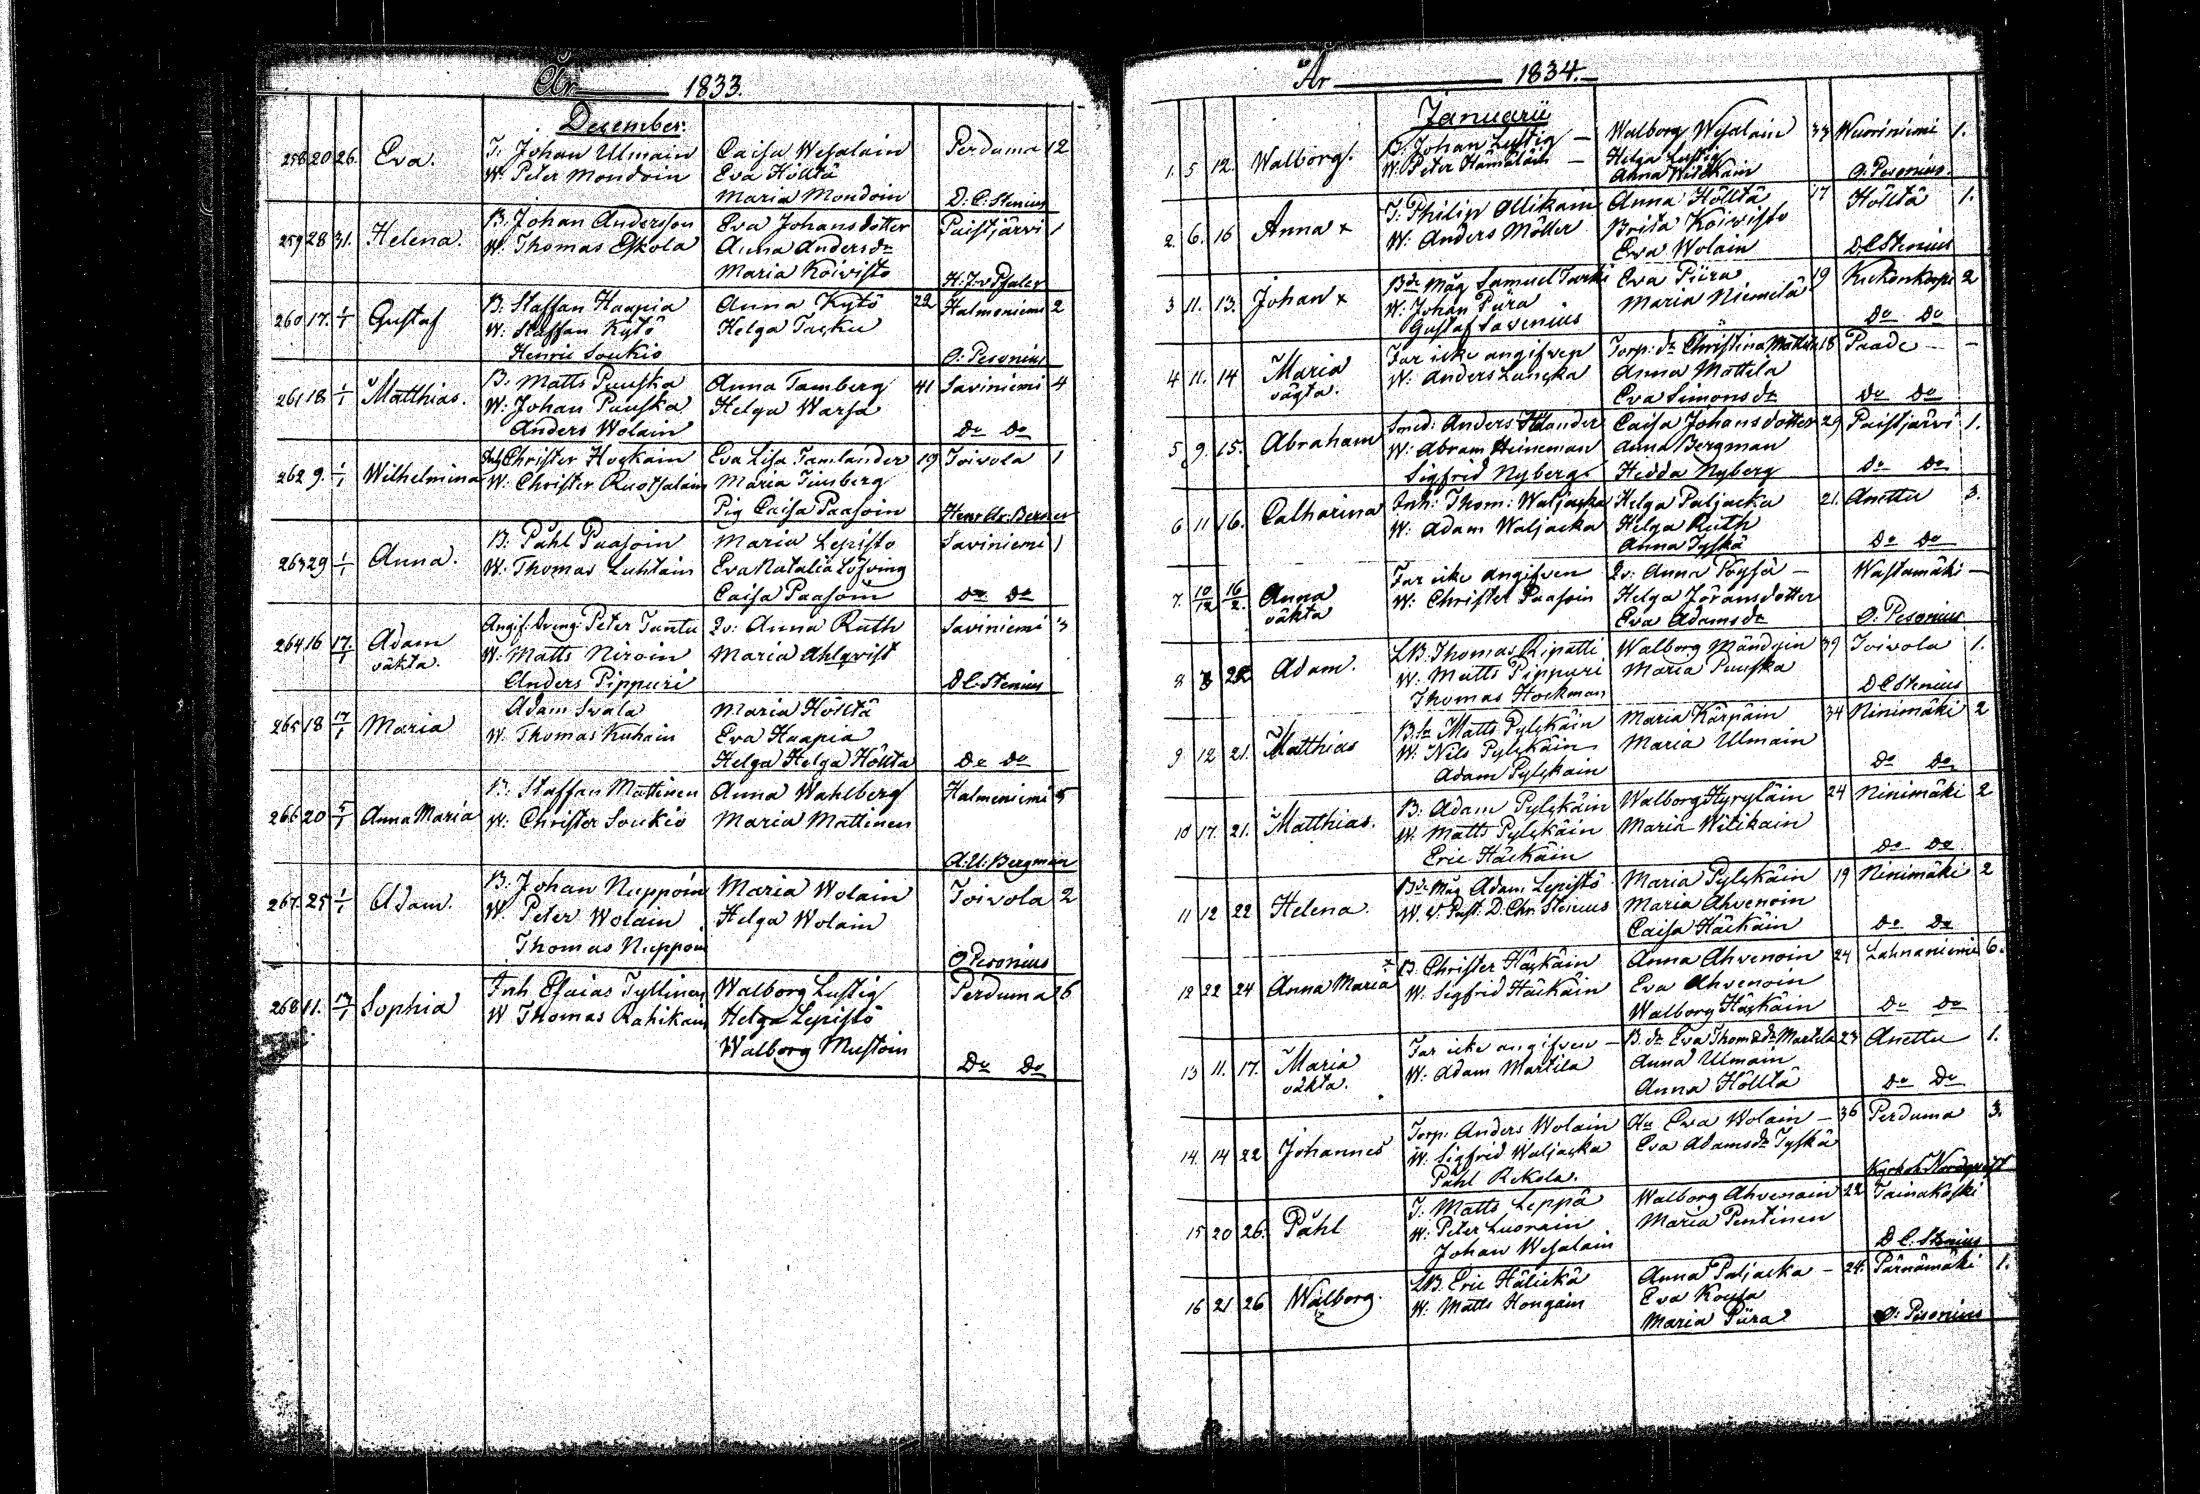 År 1833.
December.
258 20 26. Eva. T. Johan Ulmain Caisa Wesalain Perduma 2
W. Peter Mondoin Eva Hölttä
Maria Mondoin D: C: Stenius
259 28 31. Helena. B. Johan Andersson Eva Johansdotter Paistjärvi 1
W. Thomas Eskola Anna Andersdr
Maria Koivisto
260 17. 1/1 Gustaf B. Staffan Haapia Anna Kytö 22 Halmeniemi 2
W: Staffan Kytö Helga Tasku
Henric Soukio O: Pesonius
261 18 1/1 Matthias. B. Matts Puuska Anna Tamberg 41 Saviniemi 4
W: Johan Puuska Helga Warsa
Anders Wolain Do Do
262 9. 1/1 Wilhelmina Christer Hoskain Eva Lisa Tamlander 19 Toivola 1
W: Christer Ruotsalain Maria Timberg
Pig Caisa Paasoin
263 29 1/1 Anna. B. Påhl Paasoin Maria Lepisto Saviniemi 1
W. Thomas Luhtain Eva Natalia Löfving
Caisa Paasoin Do Do
264 16 17/1 Adam Angif: dreng: Peter Tuntu Qv: Anna Ruth Saviniemi 3
oäkta. W: Matts Niroin Maria Ahlqvist
Anders Pippuri D C. Stenius
265 18 17/1 Maria Adam Svala Maria Hölttä
W. Thomas Kuhain Eva Haapia
Helga Helga Höltta Do Do
266 20 5/1 Anna Maria B. Staffan Mattinen Anna Wahlberg Halmeniemi 5
W: Christer Soukio Maria Mattinen
A: U: Bergman
267. 25 1/1 Adam. B. Johan Nuppoin Maria Wolain Toivola 2
W. Peter Wolain Helga Wolain
Thomas Nuppoin O Pesonius
268 11. 17/1 Sophia Inh Esaias Tyllinen Walborg Lustig Perduma 6
W Thomas Rahikain Helga Lepistö
Walborg Mustoin Do Do
År 1834.
Januarii
1. 5 12. Walborg. B. Johan Lustig – Walborg Wesalain 33 Wuoriniemi 1.
W: Peter Hämäläin – Helga Lustig
Anna Witikain O. Pesonius.
2. 6. 16 Anna x T: Philip Ollikain Anna Höltta 17 Höltta 1.
W: Anders Möller Brita Koivisto
Eva Wolain D C Stenius
3 11. 13. Johan x Bde Måg Samuel Turki Eva Piira 19 2
W. Johan Piira Maria Niemilä
Gustaf Savenius Do Do
4 11. 14 Maria Far icke angifven Torp: dr Christina Mattila 18 Paade – –
oägta. W: Anders Luuska Anna Mattila
Eva Simonsdr Do Do
5 9. 15. Abraham Smed: Anders Caisa Johansdotter 29 Paistjärvi 1.
W: Abram Heineman Anna Bergman
Sigfrid Nyberg Hedda Nyberg Do Do
6 11 16. Catharina Inh: Thom: Waljacka Helga Paljacka 21. Anettu 3.
W: Adam Waljacka Helga Ruth
Anna Tyskä Do Do
7. 10/12 16/2. Anna Far icke angifven Qv: Anna Pöysä – Wastamäki –
oäkta W: Christer Paasoin Helga Jöransdotter
Eva Adamsdr O: Pesonius
8 Adam. LB. Thomas Ripatti Walborg Mändyin 39 Toivola 1.
W. Matts Pippuri Maria Puuska
Thomas Hockman D C Stenius
9 12 21. Matthias Matts Pylskäin Maria Kärpäin 34 Ninimäki 2
W. Nils Pylskäin Maria Ulmain
Adam Pylskain Do Do
10 17. 21. Matthias. B: Adam Pylskäin Walborg Hyryläin 24 Ninimäki 2
W. Matts Pylskäin Maria Witikain
Eric Häckäin Do Do
11 12 22 Helena. Bde Måg Adam Lepistö Maria Pylskäin 19 Ninimäki 2
W. V. Past: D. Chr. Stenius Maria Ahvenoin
Caisa Häckäin Do Do
12 22 24 Anna Maria x B. Christer Häskäin Anna Ahvenoin 24 Lahnaniemi 6.
W. Sigfrid Häckäin Eva Ahvenoin
Walborg Häskäin Do Do
13 11. 17. Maria Far icke angifven – B. dr Eva Thomdr Martila 23 Anettu 1.
oäkta. W: Adam Martila Anna Ulmain
Anna Höltta Do Do
14. 14 22 Johannes Torp: Anders Wolain Hu Eva Wolain – 36 Perduma 3.
W. Sigfrid Waljacka Eva Adamsdr Tyskä
Påhl Rekola. Kyrkoh Nordqvist
15 20 26. Påhl T: Matts Leppä Walborg Ahvenain 22 Tainakoski
W. Peter Luorain Maria Pentinen
Johan Wesalain D C: Stenius
16 21 26 Walborg. LB. Eric Hälickä Anna Paljacka – 24. Pärnämäki 1.
W: Matts Hongain Eva Kousa
Maria Piira O: Pesonius